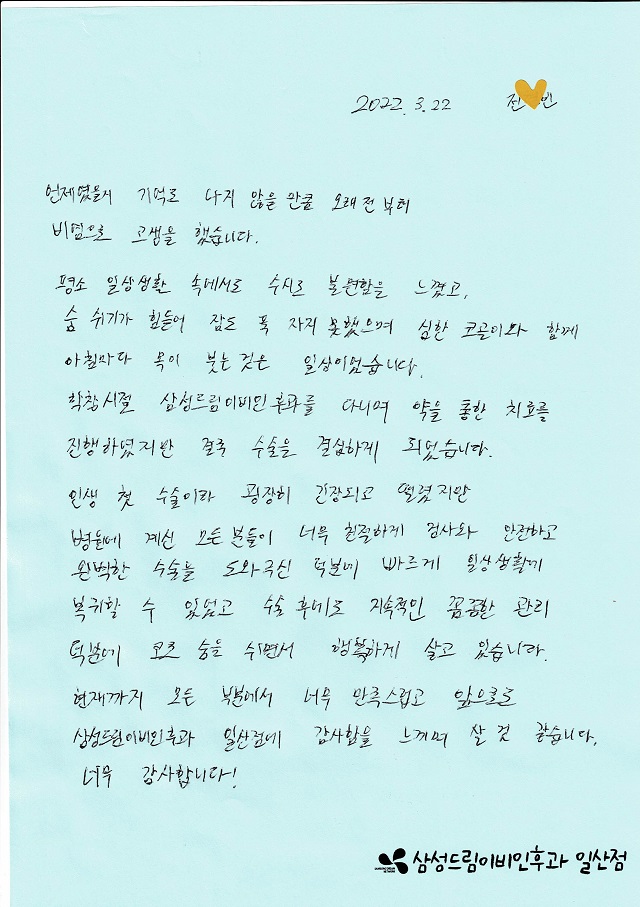 2022. 3. 22 전 민
언제였을지 기억도 나지 않을 만큼 오래전부터
비염으로 고생을 했습니다.
평소 일상생활 속에서도 수시로 불편함을 느꼈고,
숨 쉬기가 힘들어 잠도 푹 자지 못했으며 심한 코골이와 함께
아침마다 목이 붓는 것은 일상이었습니다.
학창시절 삼성드림이비인후과를 다니며 약을 통한 치료를
진행하였지만 결국 수술을 결심하게 되었습니다.
인생 첫 수술이라 굉장히 긴장되고 떨렸지만
병원에 계신 모든분들이 너무 친절하게 검사와 안전하고
완벽한 수술을 도와주신 덕분에 빠르게 일상생활에
복귀할 수 있었고 수술 후에도 지속적인 꼼꼼한 관리
덕분에 코로 숨을 쉬면서 행복하게 살고 있습니다.
현재까지 모든 부분에서 너무 만족스럽고 앞으로도
삼성드림이비인후과 일산점에 감사함을 느끼며 살 것 같습니다.
너무 감사합니다!
삼성드림이비인후과 일산점